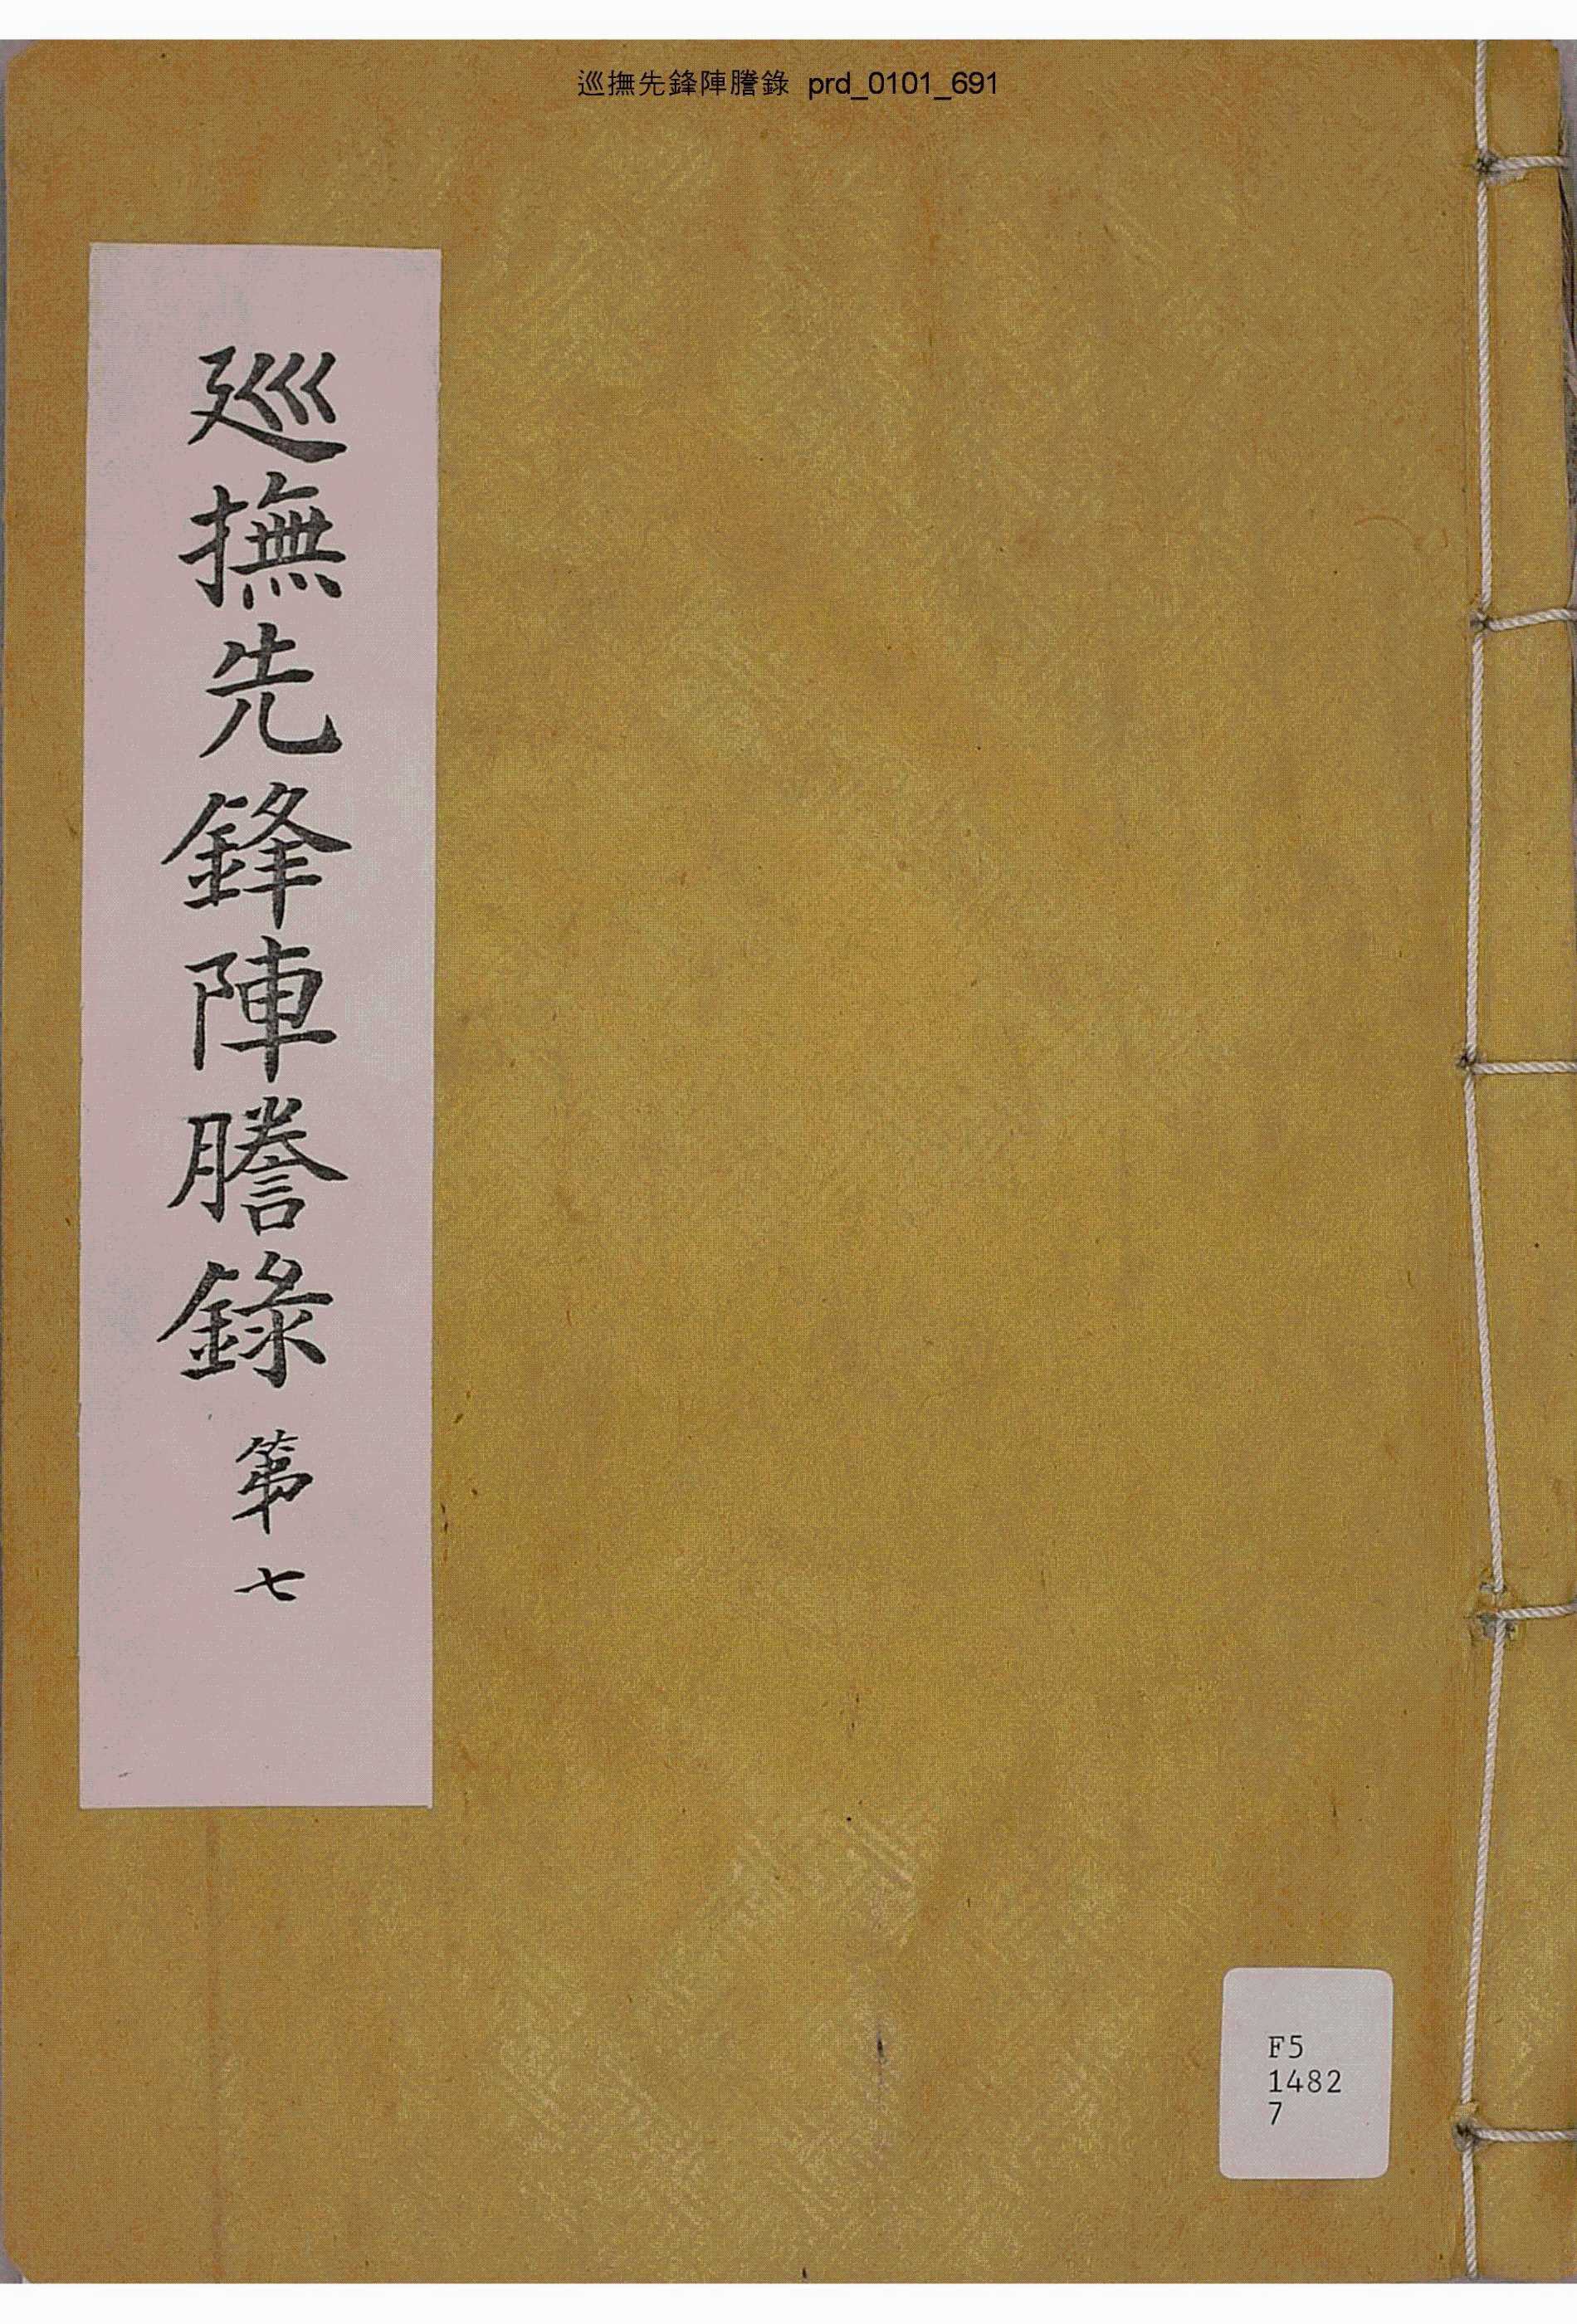 巡撫先鋒陣謄錄 prd_0101_691
廵撫先鋒陣謄錄 第七
F5
1482
7